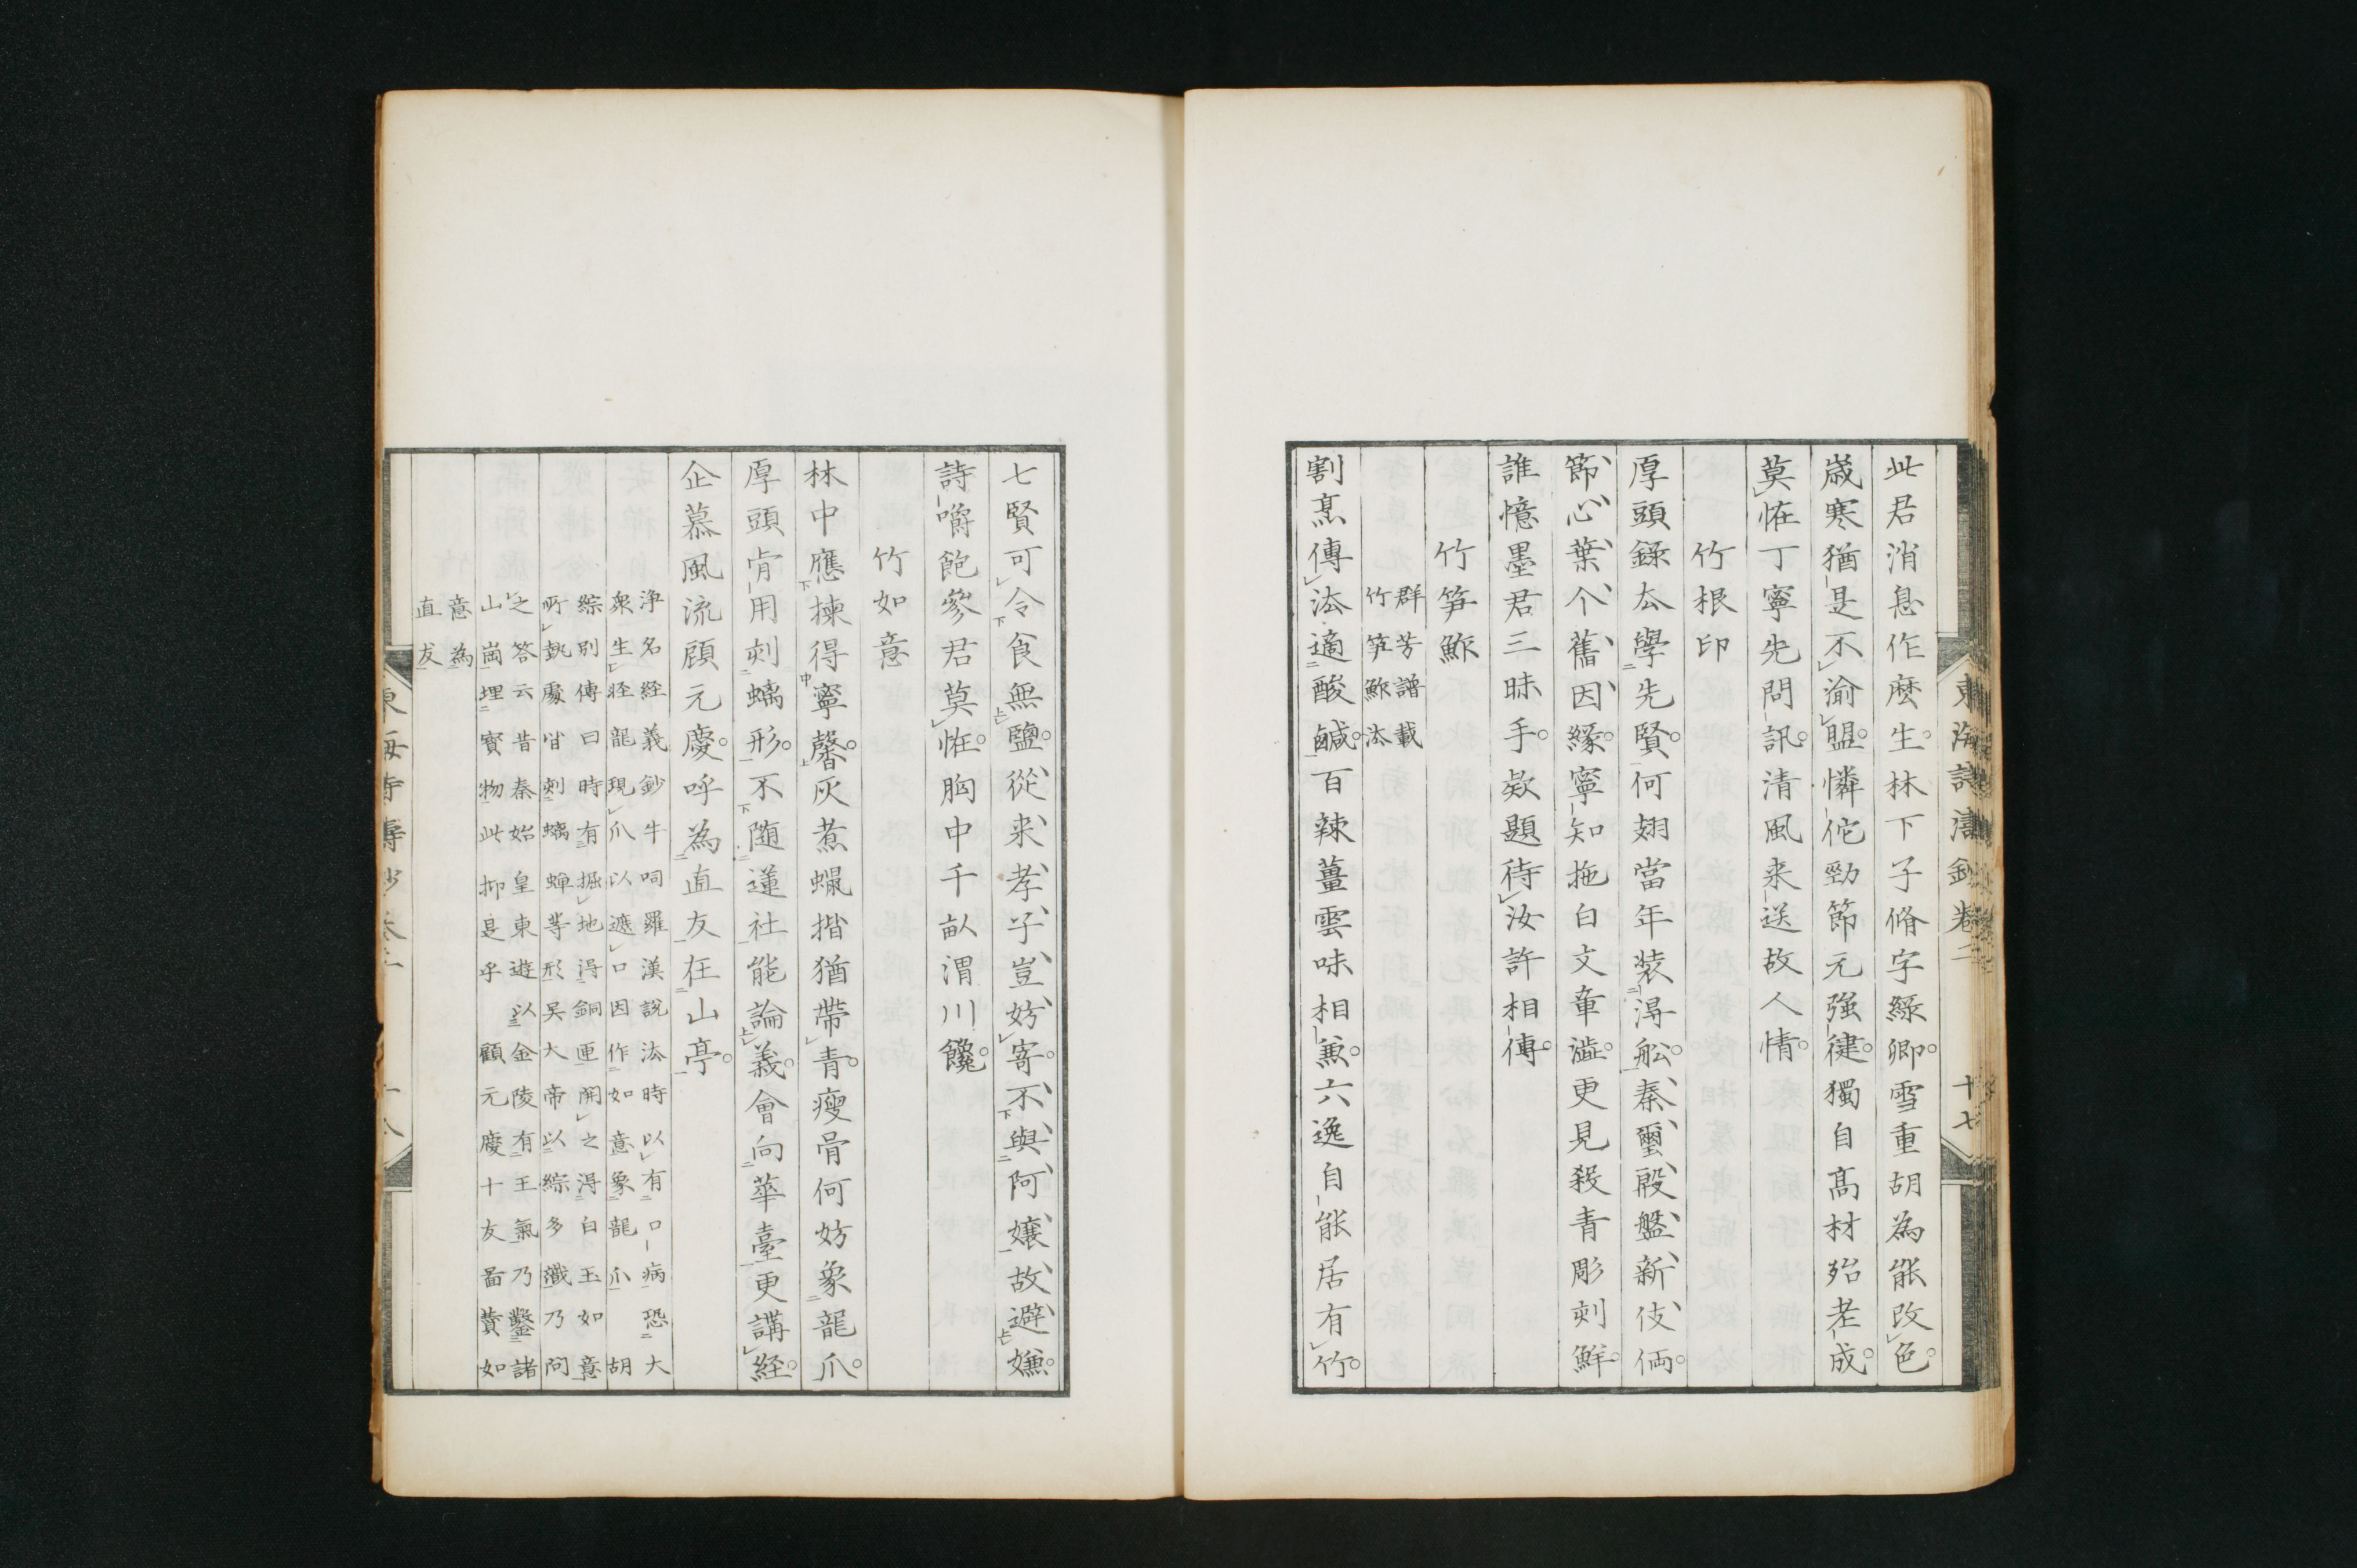 此君消息作麽生林下子脩字緑卿雪重胡為能改色
歳寒猶是不渝盟憐佗勁節元强健獨自髙材殆老成
莫恠丁寧先問訊清風来送故人情
竹根印
厚頭録厺學先賢何翅當年装淂舩秦璽殷盤新伎倆
節心葉个舊因縁寧知拖白文章澁更見殺青彫刻鮮
誰憶墨君三昧手欵題待汝許相傳
竹笋鮓
群芳譜載
竹笋鮓㳒
割烹傳㳒適酸鹹百辣薑雲味相兼六逸自能居有竹
七賢可令食無鹽從来孝子豈妨寄不與阿嬢故避嫌
詩嚼飽參君莫恠胸中千畝渭川饞
竹如意
林中應揀得寧馨灰煮蠟揩猶帶青瘦骨何妨象龍爪
厚頭肯用刻螭形不随蓮社能論義會向華臺更講経
企慕風流顧元慶呼為直友在山亭
浄名経義鈔牛呵羅漢説㳒時以有口病恐大
衆生経龍現爪以遮口因作如意象龍爪胡
綜別傳曰時有掘地淂銅匣開之淂白玉如意
所執處皆刻螭蟬等形吴大帝以綜多識乃問
之答云昔秦始皇東遊以金陵有王氣乃鑿諸
山崗埋寳物此抑是乎　顧元慶十友啚賛如
意為
直友
東海詩濤鈔卷二　十七